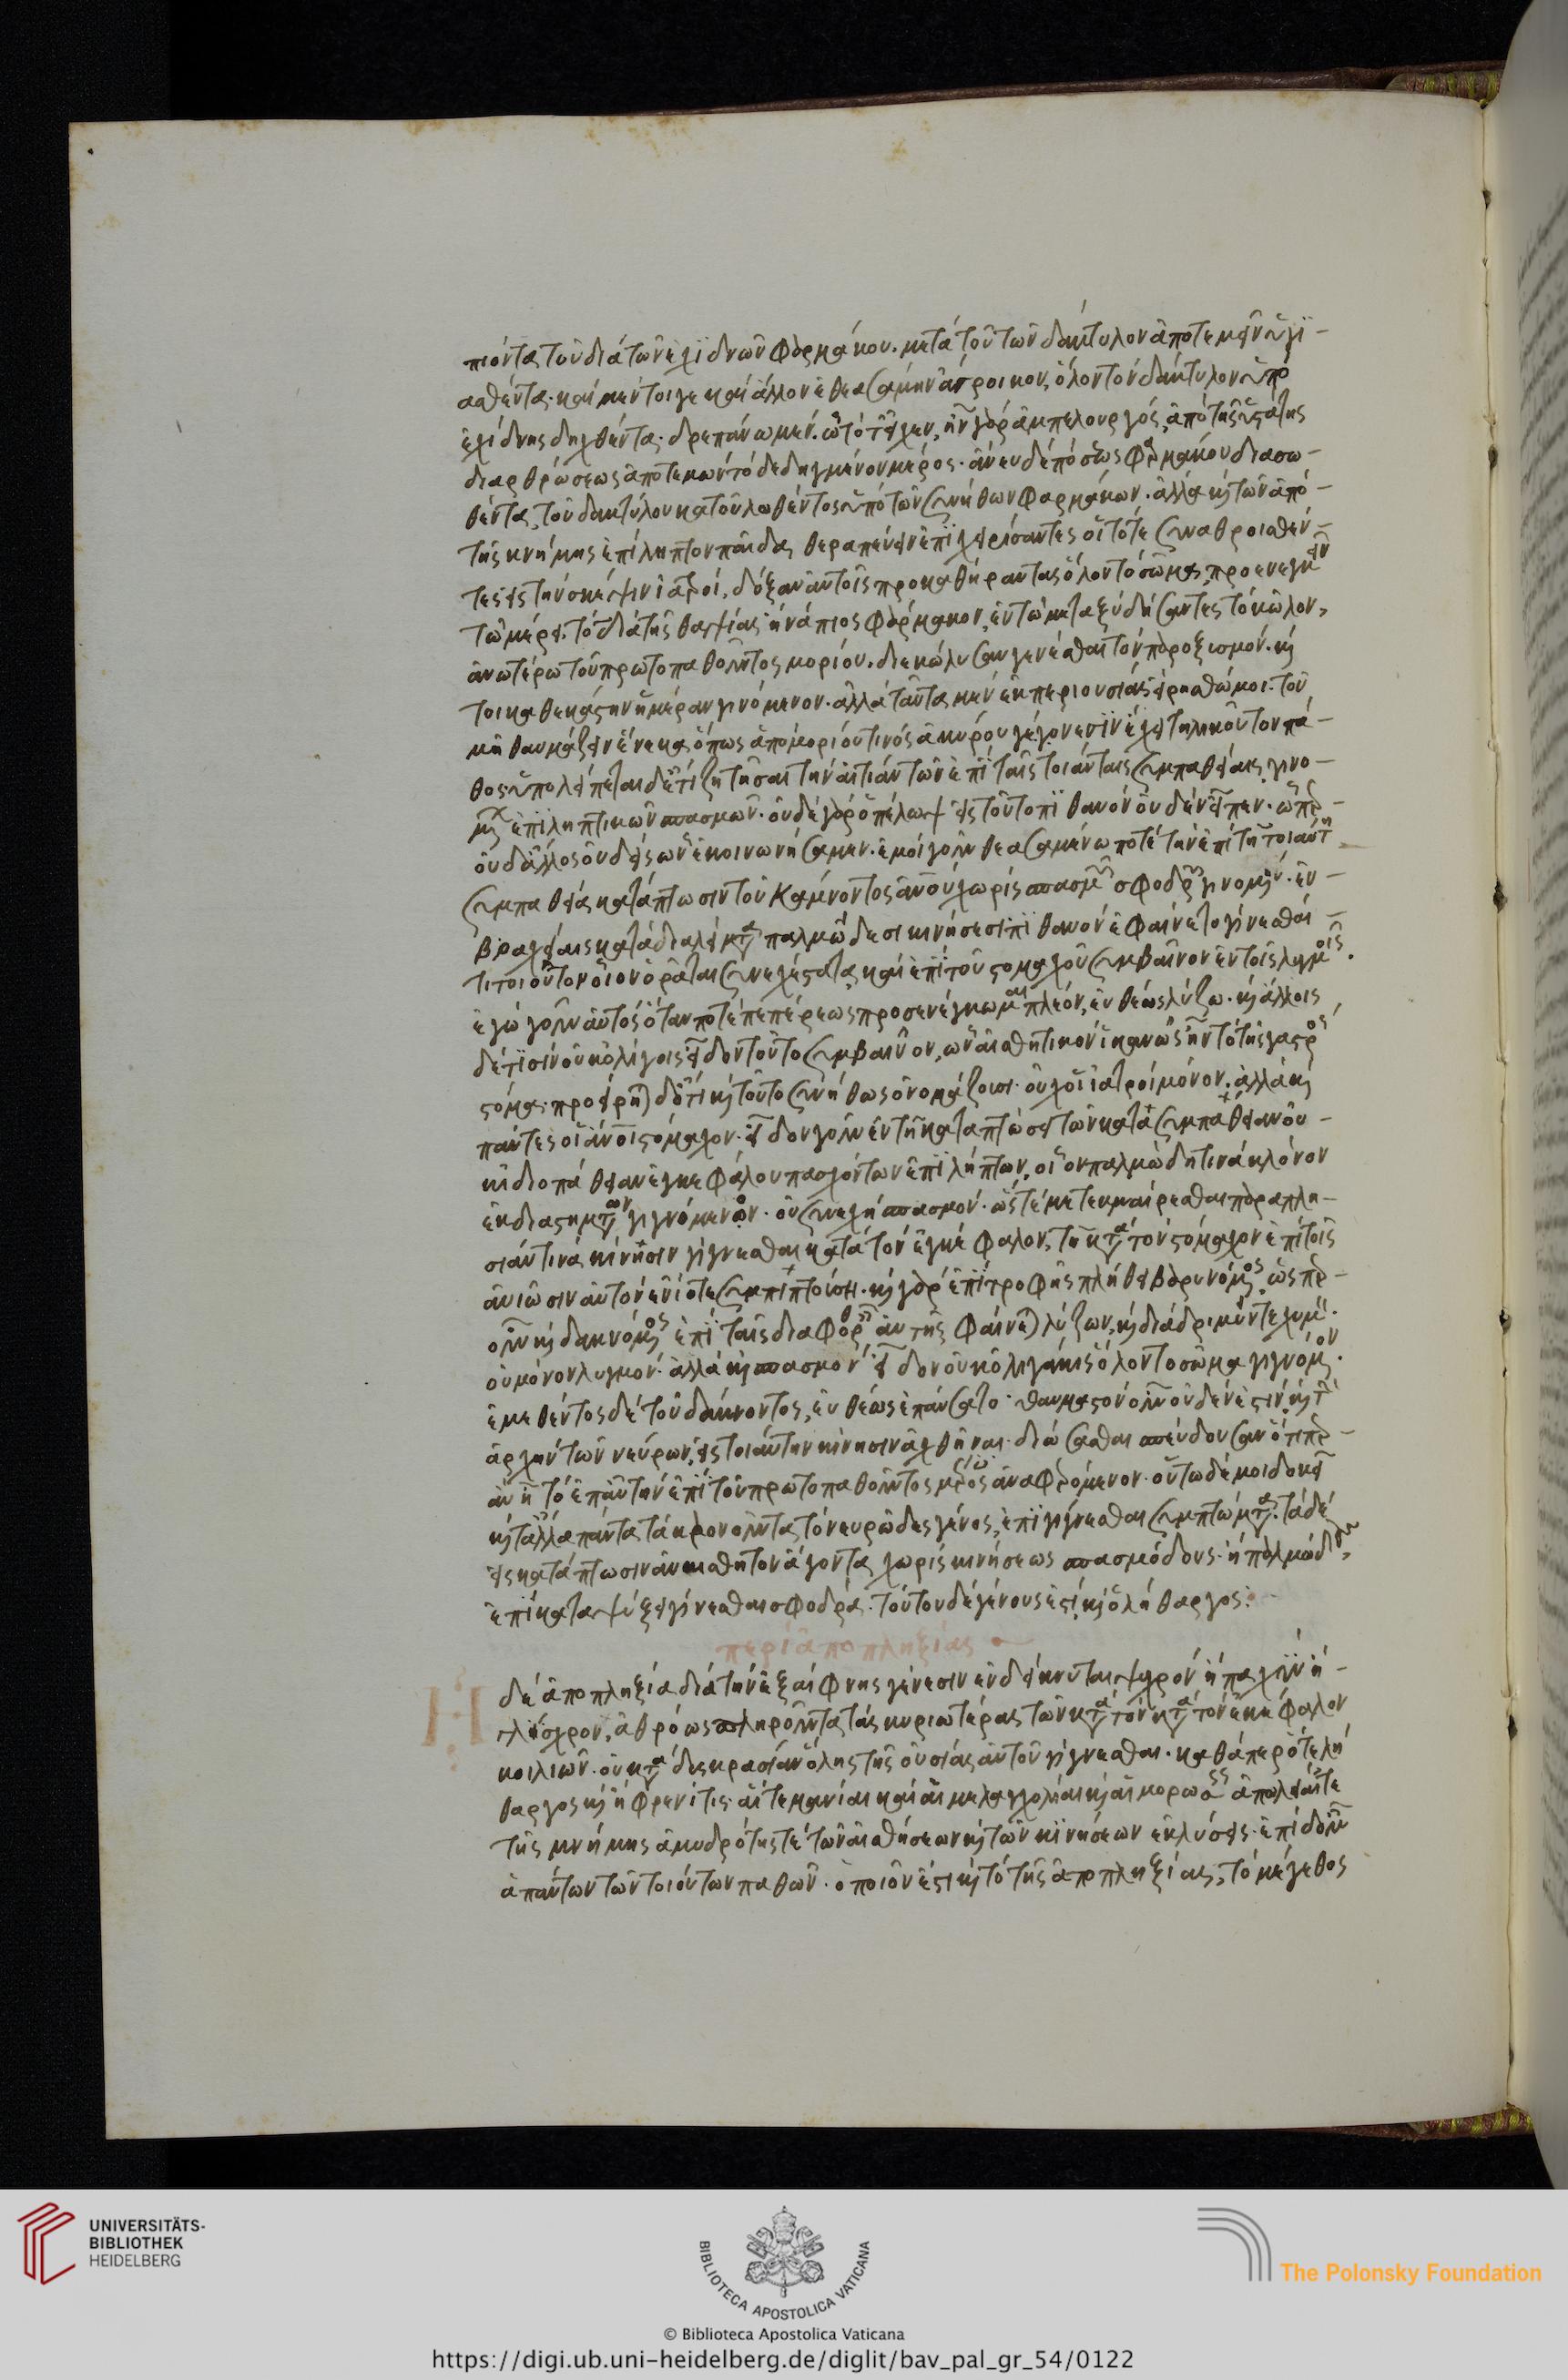 πιόντα τοῦ διὰ τῶν ἐχιδνῶν φαρμάκου. μετὰ τοῦτων δάκτυλον ἀποτεμεῖν ὑγι-
ασθέντα. καὶ μέντοιγε καὶ ἄλλον ἐθεασάμην ἄγροικον, ὅλον τὸν δάκτυλον ὑπὸ
ἐχίδνης δηχθέντα. δρεπάνω μὲν. ὧ τότ' εἶχεν, ἦν γὰρ ἀμπελουργός, ἀπὸ τῆς ὑστάτης
διαρθρώσεως ἀποτεμὼν τὸ δεδηγμένον μέρος. ἄνευ δὲ πόσεως φαρμάκου διασω-
θέντα, τοῦ δακτύλου κατουλωθέντος ὑπὸ τῶν συνήθων φαρμάκων. ἀλλὰ καὶ τῶν ἀπὸ
τῆς κνήμης ἐπίληπτον παῖδα, θεραπεύειν ἐπιχειρίσαντες οἱ τότε συναθροισθέν-
τες εἰς τὴν σκέψιν ἰατροί, δόξαν αὐτοῖς προκαθήραντας ὅλον τὸ σῶμα, προενεγκεῖν
τῶ μέρει τὸ διὰ τῆς θαψίας ἢ νάπιος φάρμακον, ἐν τῶ μεταξὺ δήσαντες τὸ κῶλον,
ἀνωτέρω τοῦ πρωτοπαθοῦντος μορίου. διεκώλυσαν γενέσθαι τὸν παροξισμόν. καὶ
τοι καθεκάστην ἡμέραν γινόμενον. ἀλλὰ ταῦτα μὲν ἐκ περιουσίας εἰρήσθω μοι. τοῦ
μὴ θαυμάζειν ἕνεκα, ὅπως ἀπὸ μορίου τινὸς ἀκύρου γέγονεσίν ἔχει τηλικοῦτον πά-
θος ὑπολείπεται δ' ἔτι ζητῆσαι τὴν αἰτίαν τῶν ἐπὶ ταῖς τοιαύταις συμπαθείαις, γινο-
μένων ἐπιληπτικῶν σπασμῶν. οὐδὲ γὰρ ὁ πέλωψ εἰς τοῦτο πιθανὸν οὐδὲν εἶπεν. ὥσπερ
οὐδ' ἄλλος οὐδεὶς ὧν ἐκοινωνήσαμεν. ἐμοὶ γοῦν θεασαμένω ποτὲ τὴν ἐπὶ τῆ τοιαύτη
συμπαθεία κατάπτωσιν τοῦ κάμνοντος ἄνου χωρὶς σπασμῶν σφοδρῶν γινομένην. ἐν
βραχείαις κατὰ διαλείμματα παλμώδεσι κινήσεσι πιθανὸν ἐφαίνετο γίνεσθαι
τι τοιοῦτον οἷον ὁρᾶται συνεχέστατα, καὶ ἐπὶ τοῦ στομάχου συμβαῖνον ἐν τοῖς λυγμοῖς.
ἐγὼ γοῦν αὐτὸς ὅταν ποτὲ πεπέρεως προσενέγκωμαι πλέον, εὐθέως λύζω. καὶ ἄλλοις
δέ τισιν οὐκ ὀλίγοις εἶδον τοῦτο συμβαῖνον, ὧν αἰσθητικὸν ἱκανῶς ἦν τὸ τῆς γαστρὸς
στόμα. προσείρηται δ' ὅτι καὶ τοῦτο συνήθως ὀνομάζουσι. οὐχ' οἱ ἰατροὶ μόνον, ἀλλὰ καὶ
πάντες οἱ ἄνοι στόμαχον. εἶδον γοῦν ἐν τῆ καταπτώσει τῶν κατὰ συμπάθειαν οὐ
κ' ἰδιοπάθειαν ἐγκεφάλου πασχόντων ἐπιλήπτων, οἷον παλμώδη τινὰ κλόνον
ἐκ διαστημάτων γιγνόμενον. οὐ συνεχῆ σπασμόν. ὥστέ με τεκμαίρεσθαι παραπλη-
σίαν τινὰ κίνησιν γίγνεσθαι κατὰ τὸν ἐγκέφαλον, τῆ κατὰ τὸν στόμαχον ἐπὶ τοῖς
ἀνιῶσιν αὐτὸν ἐνίοτε συμπιπτούση. καὶ γὰρ ἐπὶ τροφῆς πλήθει βαρυνόμενος, ὥσπερ
οὖν καὶ δακνόμενος ἐπὶ ταῖς διαφθοραῖς αὐτῆς φαίνεται λύζων, καὶ διὰ δριμύν τε χυμὸν.
οὐ μόνον λυγμόν. ἀλλὰ καὶ σπασμὸν εἶδον οὐκ ὀλιγάκις ὅλον τὸ σῶμα γιγνόμενον.
ἐμεθέντος δὲ τοῦ δάκνοντος, εὐθέως ἐπαύσατο. θαυμαστὸν οὖν οὐδὲν ἐστιν, καὶ τὴν
ἀρχὴν τῶν νεύρων, εἰς τοιαύτην κίνησιν ἀχθῆναι. διώσασθαι σπεύδουσαν ὅτιπερ
ἂν ἦ τὸ ἐπ' αὐτὴν ἐπὶ τοῦ πρωτοπαθοῦντος μέρος ἀναφερόμενον. οὕτω δέ μοι δοκεῖ
καὶ τἄλλα πάντα τὰ κλονοῦντα τὸ νευρῶδες γένος, ἐπιγίγνεσθαι συμπτώματα. τὰ δὲ
εἰς κατάπτωσιν ἀναίσθητον ἄγοντα, χωρὶς κινήσεως σπασμώδους ἢ παλμώδους,
ἐπὶ καταψύξει γίνεσθαι σφοδρᾶ. τούτου δὲ γένους ἐστὶ, καὶ ὁ λήθαργος:
περὶ ἀποπληξίας
Η δὲ ἀποπληξία διὰ τὴν ἐξαίφνης γένεσιν ἐνδείκνυται ψυχρὸν ἢ παχὺν ἢ
γλίσχρον, ἀθρόως πληροῦντα τὰς κυριωτέρας τῶν κατὰ τὸν κατὰ τὸν ἐγκέφαλον
κοιλιῶν. οὐ κατὰ δυσκρασίαν ὅλης τῆς οὐσίας αὐτοῦ γίγνεσθαι. καθάπερ ὅ τε λή
θαργος καὶ ἡ φρενίτις. αἵ τε μανίαι καὶ αἱ μελαγχολίαι καὶ αἱ μορώσεις ἀπώλειαί τε
τῆς μνήμης ἀμυδρότης τὲ τῶν αἰσθήσεων καὶ τῶν κινήσεων ἐκλύσεις. ἐπὶ δ' οὖν
ἁπάντων τῶν τοιούτων παθῶν. ὁποῖον ἐστι καὶ τὸ τῆς ἀποπληξίας, τὸ μέγεθος
UNIVERSITÄTS-
BIBLIOTHEK
HEIDELBERG
BIBLIOTECA APOSTOLICA VATICANA
The Polonsky Foundation
© Biblioteca Apostolica Vaticana
https://digi.ub.uni-heidelberg.de/diglit/bav_pal_gr_54/0122